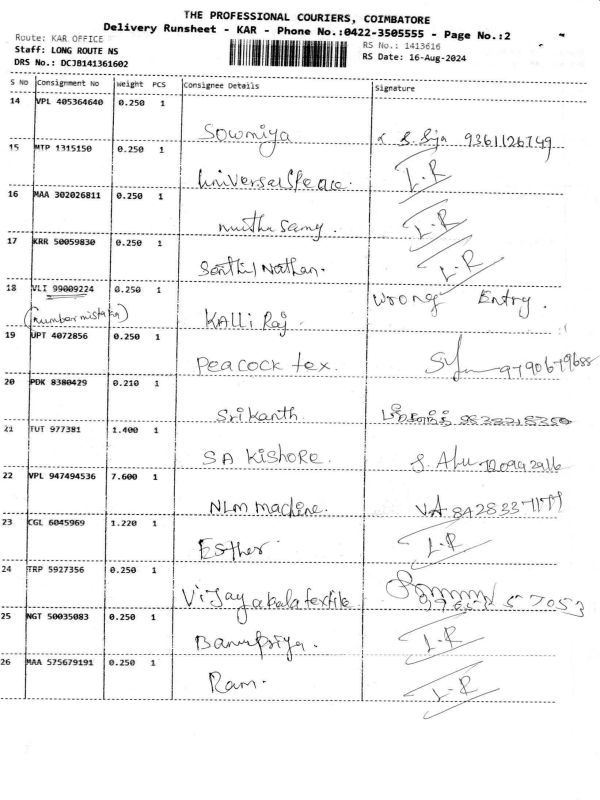 THE PROFESSIONAL COURIERS, COIMBATORE
Delivery Runsheet - KAR - Phone No.:0422-3505555 - Page No.:2
Route: KAR OFFICE
RS No.: 1413616
Staff: LONG ROUTE NS
RS Date: 16-Aug-2024
DRS No.: DCJB141361602
S No Consignment No Weight PCS Consignee Details Signature
14 VPL 405364640 0.250 1
Sowmiya 9361126749
15 MTP 1315150 0.250 1
Universal Peace. L.R
16 MAA 302026811 0.250 1
muthu samy. L.R
17 KRR 50059830 0.250 1
Senthil Nathan. L.R
18 VLI 99009224 0.250 1
Wrong Entry.
(number mistake) KALLI Raj.
19 UPT 4072856 0.250 1
Peacock tex. 9790679688
20 PDK 8380429 0.210 1
Srikanth
21 TUT 977381 1.400 1
SA KISHORE.
22 VPL 947494536 7.600 1
NLM machine. VA
23 CGL 6045969 1.220 1
Esther. L.R
24 TRP 5927356 0.250 1
Vijayakala textile 57053
25 NGT 50035083 0.250 1
Banupriya. L.R
26 MAA 575679191 0.250 1
Ram. L.R